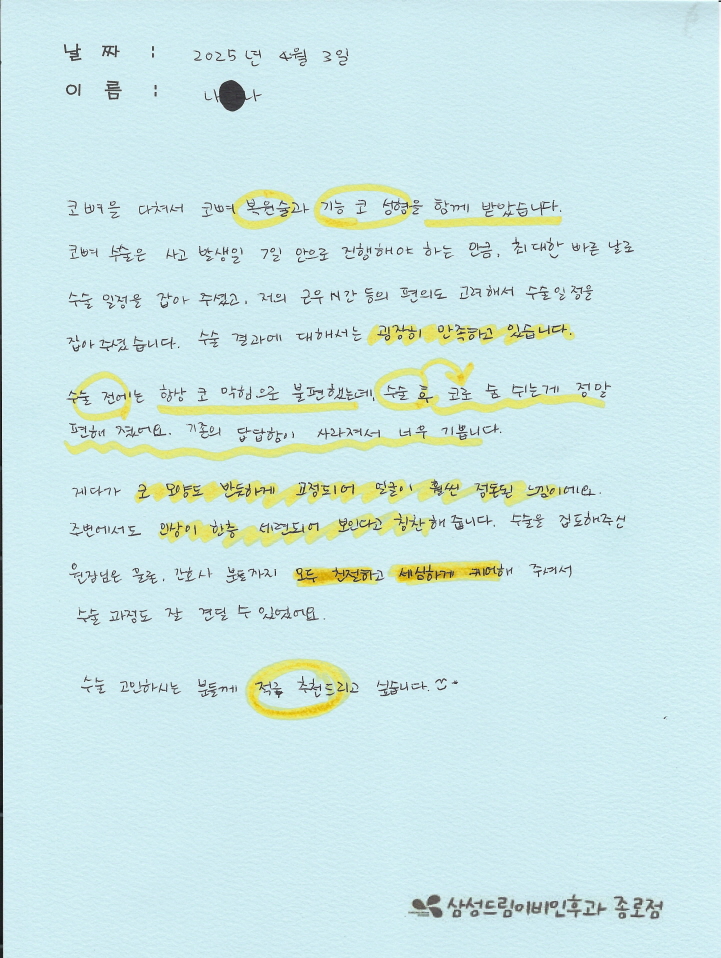 날 짜 : 2025년 4월 3일
이 름 : 나 나
코뼈를 다쳐서 코뼈 복원술과 기능 코 성형을 함께 받았습니다.
코뼈 수술은 사고 발생일 7일 안으로 진행해야 하는 만큼, 최대한 빠른 날로
수술 일정을 잡아 주셨고, 저의 근무시간 등의 편의도 고려해서 수술일정을
잡아 주셨습니다. 수술 결과에 대해서는 굉장히 만족하고 있습니다.
수술 전에는 항상 코 막힘으로 불편했는데, 수술 후 코로 숨 쉬는게 정말
편해 졌어요. 기존의 답답함이 사라져서 너무 기쁩니다.
게다가 코 모양도 반듯하게 교정되어 얼굴이 훨씬 정돈된 느낌이에요.
주변에서도 인상이 한층 세련되어 보인다고 칭찬해 줍니다. 수술을 집도해주신
원장님은 물론, 간호사 분들까지 모두 친절하고 세심하게 케어해 주셔서
수술 과정도 잘 견딜 수 있었어요.
수술 고민하시는 분들께 적극 추천드리고 싶습니다.
삼성드림이비인후과 종로점